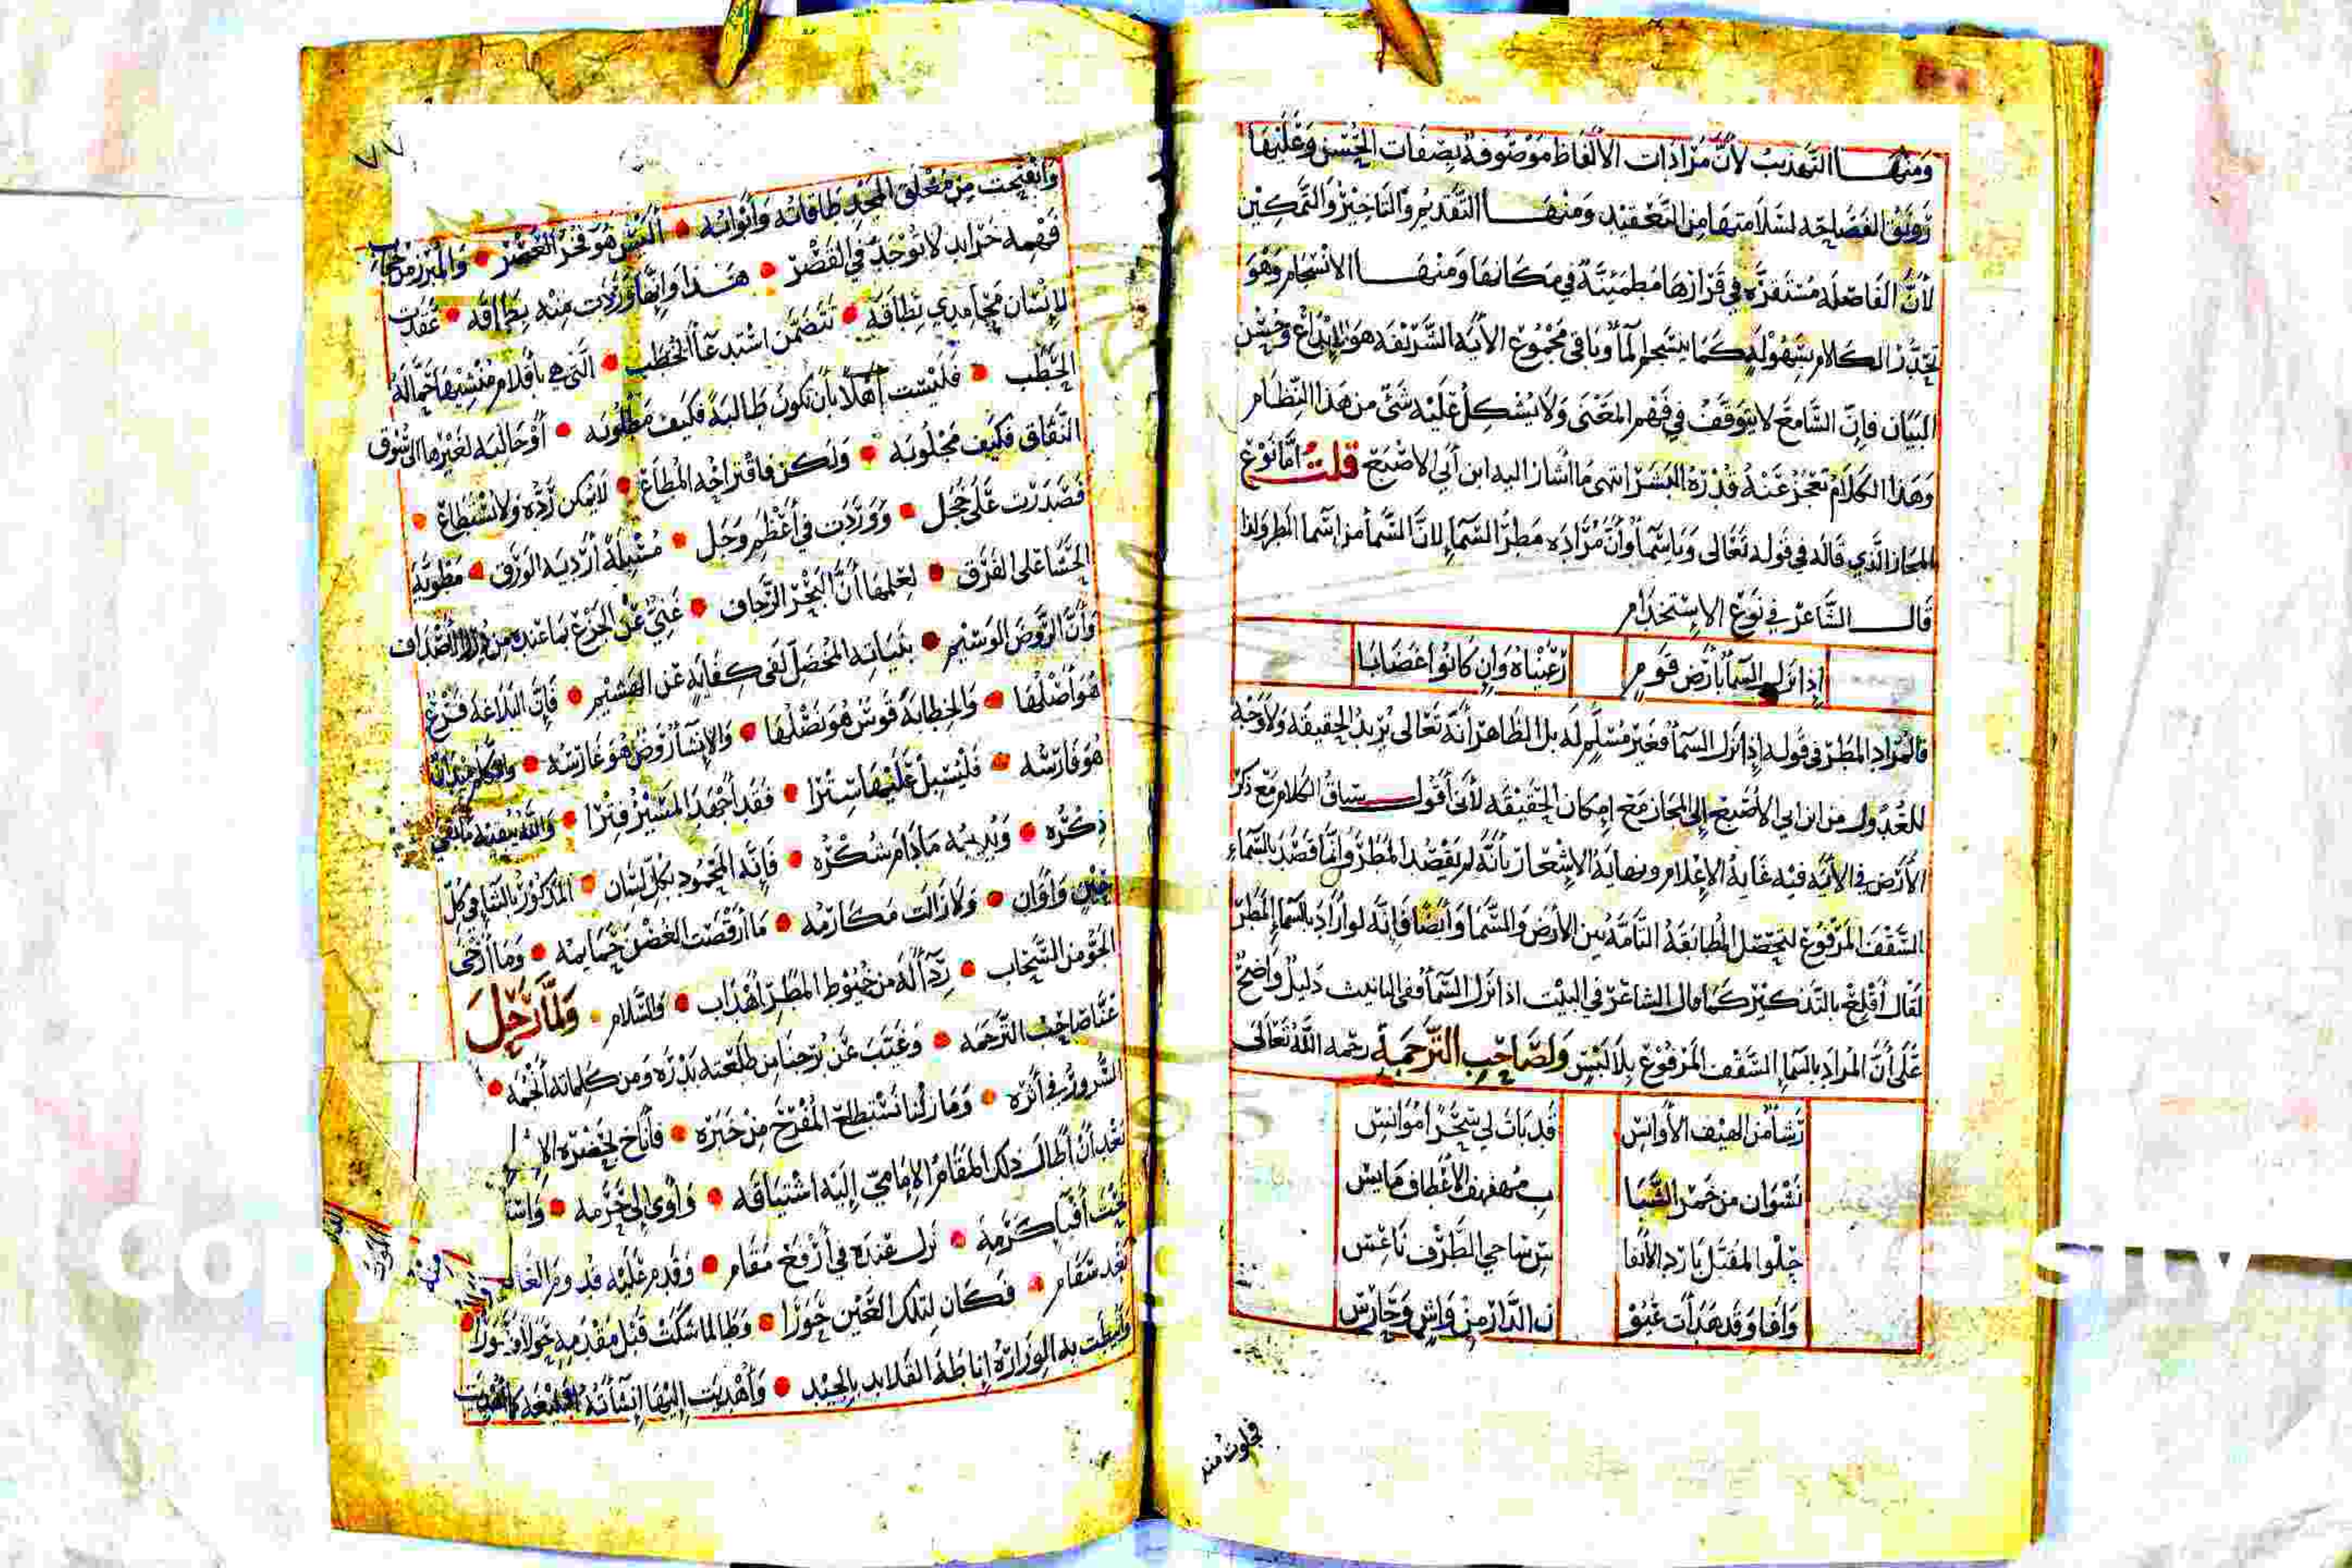 ومنها التهذيب لأن مرادات الألفاظ موصوفة بصفات الحسن وعليها
رونق الفصاحة لسلامتها من التعقيد ومنها التقديم والتأخير والتمكين
لأن الفاصلة مستقرة في قرارها مطمئنة في مكانها ومنها الانسجام وهو
تحدر الكلام بسهولة كما ينسجم الماء وباقي مجموع الآية الشريفة هو الإبداع وحسن
البيان فإن السامع لا يتوقف في فهم المعنى ولا يشكل عليه شيء من هذا النظام
وهذا الكلام تعجز عنه قدرة البشر انتهى ما أشار إليه ابن أبي الاصبع قلت أما نوع
المجاز الذي قاله في قوله تعالى ويا سماء وأن مراده مطر السماء لأن السماء من أسماء المطر ولذا
قال الشاعر في نوع الاستخدام
إذا نزل السماء بأرض قوم رعيناه وإن كانوا غضابا
فالمراد المطر في قوله إذا نزل السماء فغير مسلم له بل الظاهر أنه تعالى يريد الحقيقة ولا وجه
للعدول من ابن أبي الأصبع إلى المجاز مع إمكان الحقيقة لأني أقول سياق الكلام مع ذكر
الأرض في الآية فيه غاية الإعلام ونهاية الإشعار بأنه لم يقصد المطر وإنما قصد بالسماء
السقف المرفوع لتحصل المطابقة التامة بين الأرض والسماء وأيضا فإنه لو أراد بالسماء المطر
لقال أقلع بالتذكير كما قال الشاعر في البيت إذا نزل السماء ففي التأنيث دليل واضح
على أن المراد بالسماء السقف المرفوع بلا لبس ولصاحب الترجمة رحمه الله تعالى
رشأ من الهيف الأوانس قد بات لي سحرا موانس
نشوان من خمر الصبا ب مهفهف الأعطاف مايس
حلو المقبل بارد الأنفا س ساجي الطرف ناعس
وافا وقد هدأت عيو ن الدار من واش وحارس
فجلوت منه
٧٧
وانفتحت من مغلق المجد طاقاته وأبوابه أليس هو فخر العصر والمبرز من
فهمه خرايد لا توجد في القصر هذا وإنها وردت منه بطاقة عقدت
لإنسان نطاقه تتضمن استدعاء الخطب التي هي بأقلام منشيها حمالة
الحطب فليست أهلا بأن تكون طالبة فكيف مطلوبه أو جالبة لغيرها إلى سوق
النفاق فكيف مجلوبه ولكن فاقتراحه المطاع لا يمكن رده ولا يستطاع
فصدرت على خجل ووردت في أعظم وجل مسبلة أردية الورق مطوية
الحشا على الفرق لعلمها أن البحر الرجاف غني عن الجزع بما عنده من الأصداف
وأن الروض الوسيم بنباته المخضل لفي كفاية عن الهشيم فإن البلاغة فرع
هو أصلها والخطابة قوس هو نصلها والإنشاء روض هو غارسه والكلام ميدان
هو فارسه فليسبل عليها سترا فقد أجهد المسير فترا والله يبقيه ما بقي
ذكره ويديمه ما دام شكره فإنه المحمود بكل لسان المذكور بالثناء في كل
حين وأوان ولا زالت مكارمه ما أرقصت الغصن حمايمه وما أرخى
الجو من السحاب رداء له من خيوط المطر أهداب والسلام ولما رحل
عنا صاحب الترجمه وغيب عن برجنا من طلعته بدره ومن كلماته أنجمه
السرور في أثره وما زلنا نستطلع المفرح من خبره فأناخ بحضرة
بعد أن أطال ذلك المقام الإمامي إليه اشتياقه وآوى إلى حرمه
تحت أفياء كرمه نزل عنده في أرفع مقام وقدم عليه قدوم
بعد سقام فكان لتلك العين حورا وطالما شكت قبل مقدمه حولا وعورا
وأنيطت به الوزارة إناطة القلايد بالجيد وأهديت إليها إنشاءاته